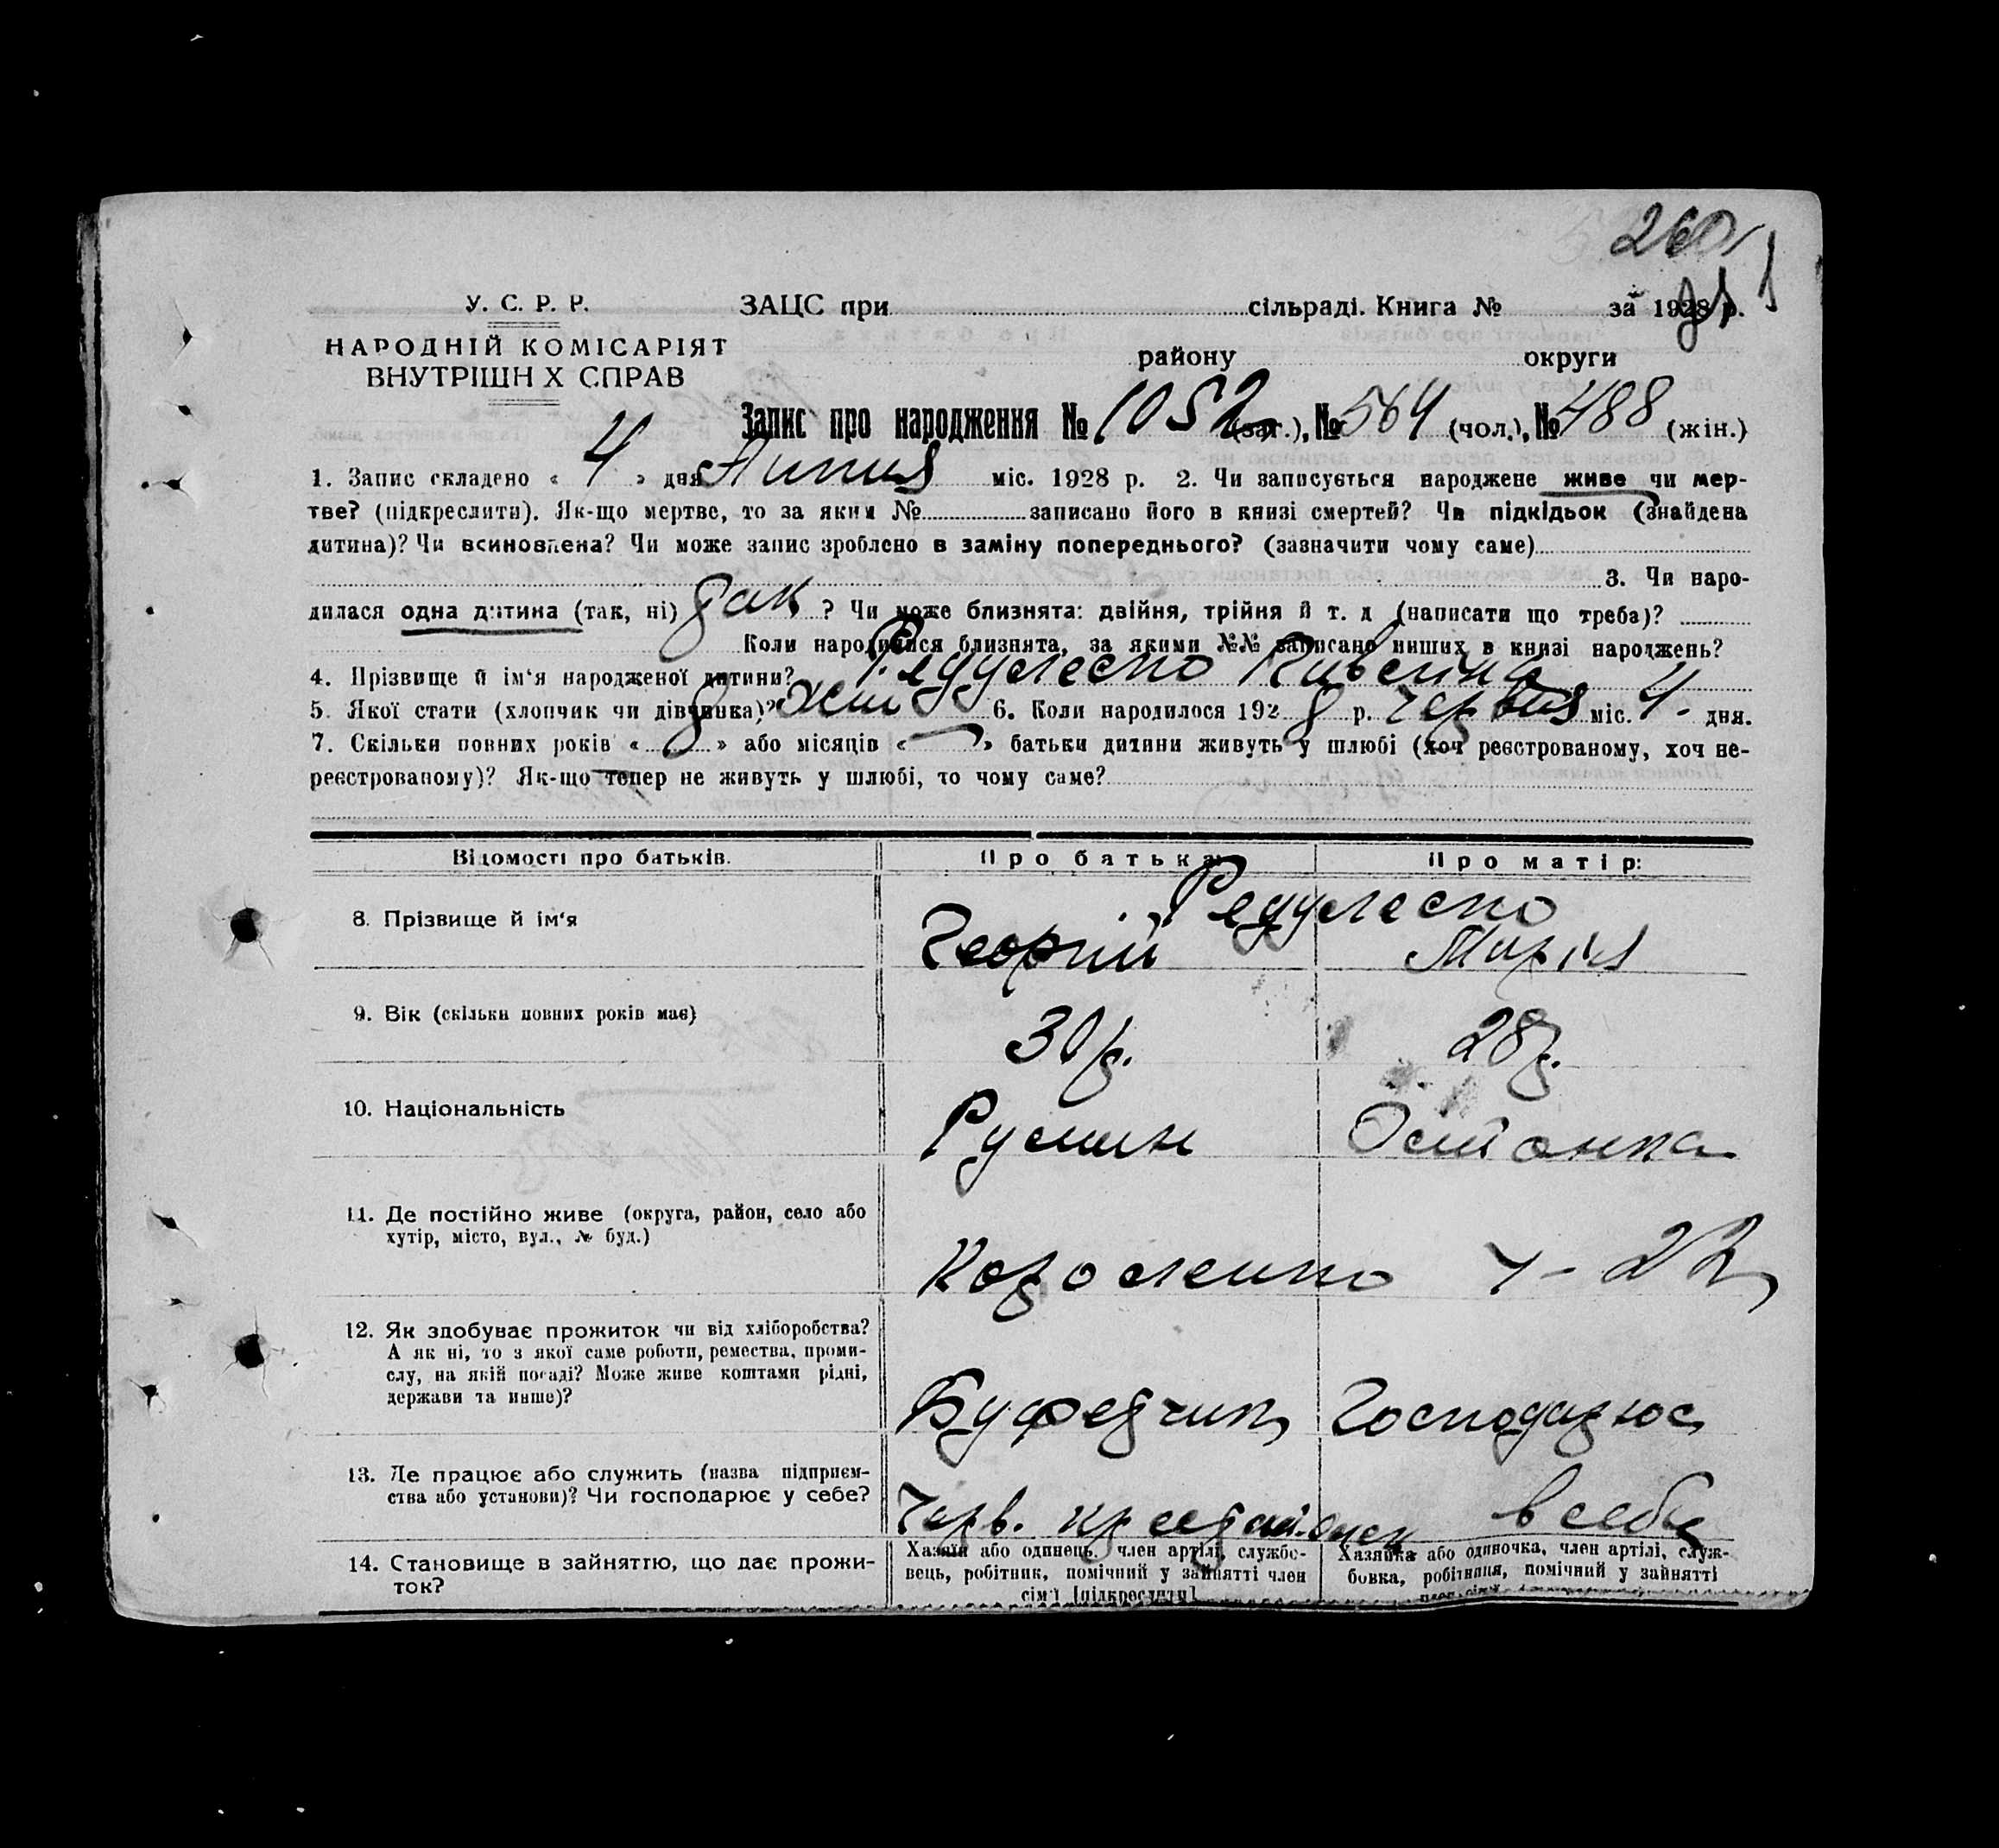 260
У. С. Р. Р.
НАРОДНІЙ КОМІСАРІЯТ
ВНУТРІШН Х СПРАВ
ЗАЦС при сільраді. Книга № за 1928 р.
району округи
Запис про народження № 1052 (заг.), № 564 (чол.), № 488 (жін.)
1. Запис складено « 4 » дня Липня міс. 1928 р. 2. Чи записується народжене живе чи мер-
тве? (підкреслити). Як-що мертве, то за яким № записано його в книзі смертей? Чи підкідьок (знайдена
дитина)? Чи всиновлена? Чи може запис зроблено в заміну попереднього? (зазначити чому саме)
3. Чи наро-
дилася одна дитина (так, ні) так ? Чи може близнята: двійня, трійня й т. д (написати що треба)?
Коли народилися близнята, за якими №№ записано инших в книзі народжень?
4. Прізвище й ім'я народженої дитини? Редулеско
5. Якої стати (хлопчик чи дівчинка)? жін 6. Коли народилося 1928 р. червня міс. 4 дня.
7. Скільки повних років « 8 » або місяців « — » батьки дитини живуть у шлюбі (хоч реєстрованому, хоч не-
реєстрованому)? Як-що тепер не живуть у шлюбі, то чому саме?
Відомості про батьків. Про батька: Про матір:
Редулеско
8. Прізвище й ім'я Георгій Марія
9. Вік (скільки повних років має) 30 р. 28 р.
10. Національність Румин Естонка
11. Де постійно живе (округа, район, село або
хутір, місто, вул., № буд.)
Короленко 4-22
12. Як здобуває прожиток чи від хліборобства?
А як ні, то з якої саме роботи, ремества, проми-
слу, на якій посаді? Може живе коштами рідні,
держави та инше)?
Буфетчик Господарює
13. Де працює або служить (назва підприєм-
ства або установи)? Чи господарює у себе?
Черв. в себе
14. Становище в зайняттю, що дає прожи-
ток?
Хазяїн або одинець, член артілі, службо-
вець, робітник, помічний у зайнятті член
сім'ї [підкреслити]
Хазяйка або одиночка, член артілі, служ-
бовка, робітниця, помічний у зайнятті